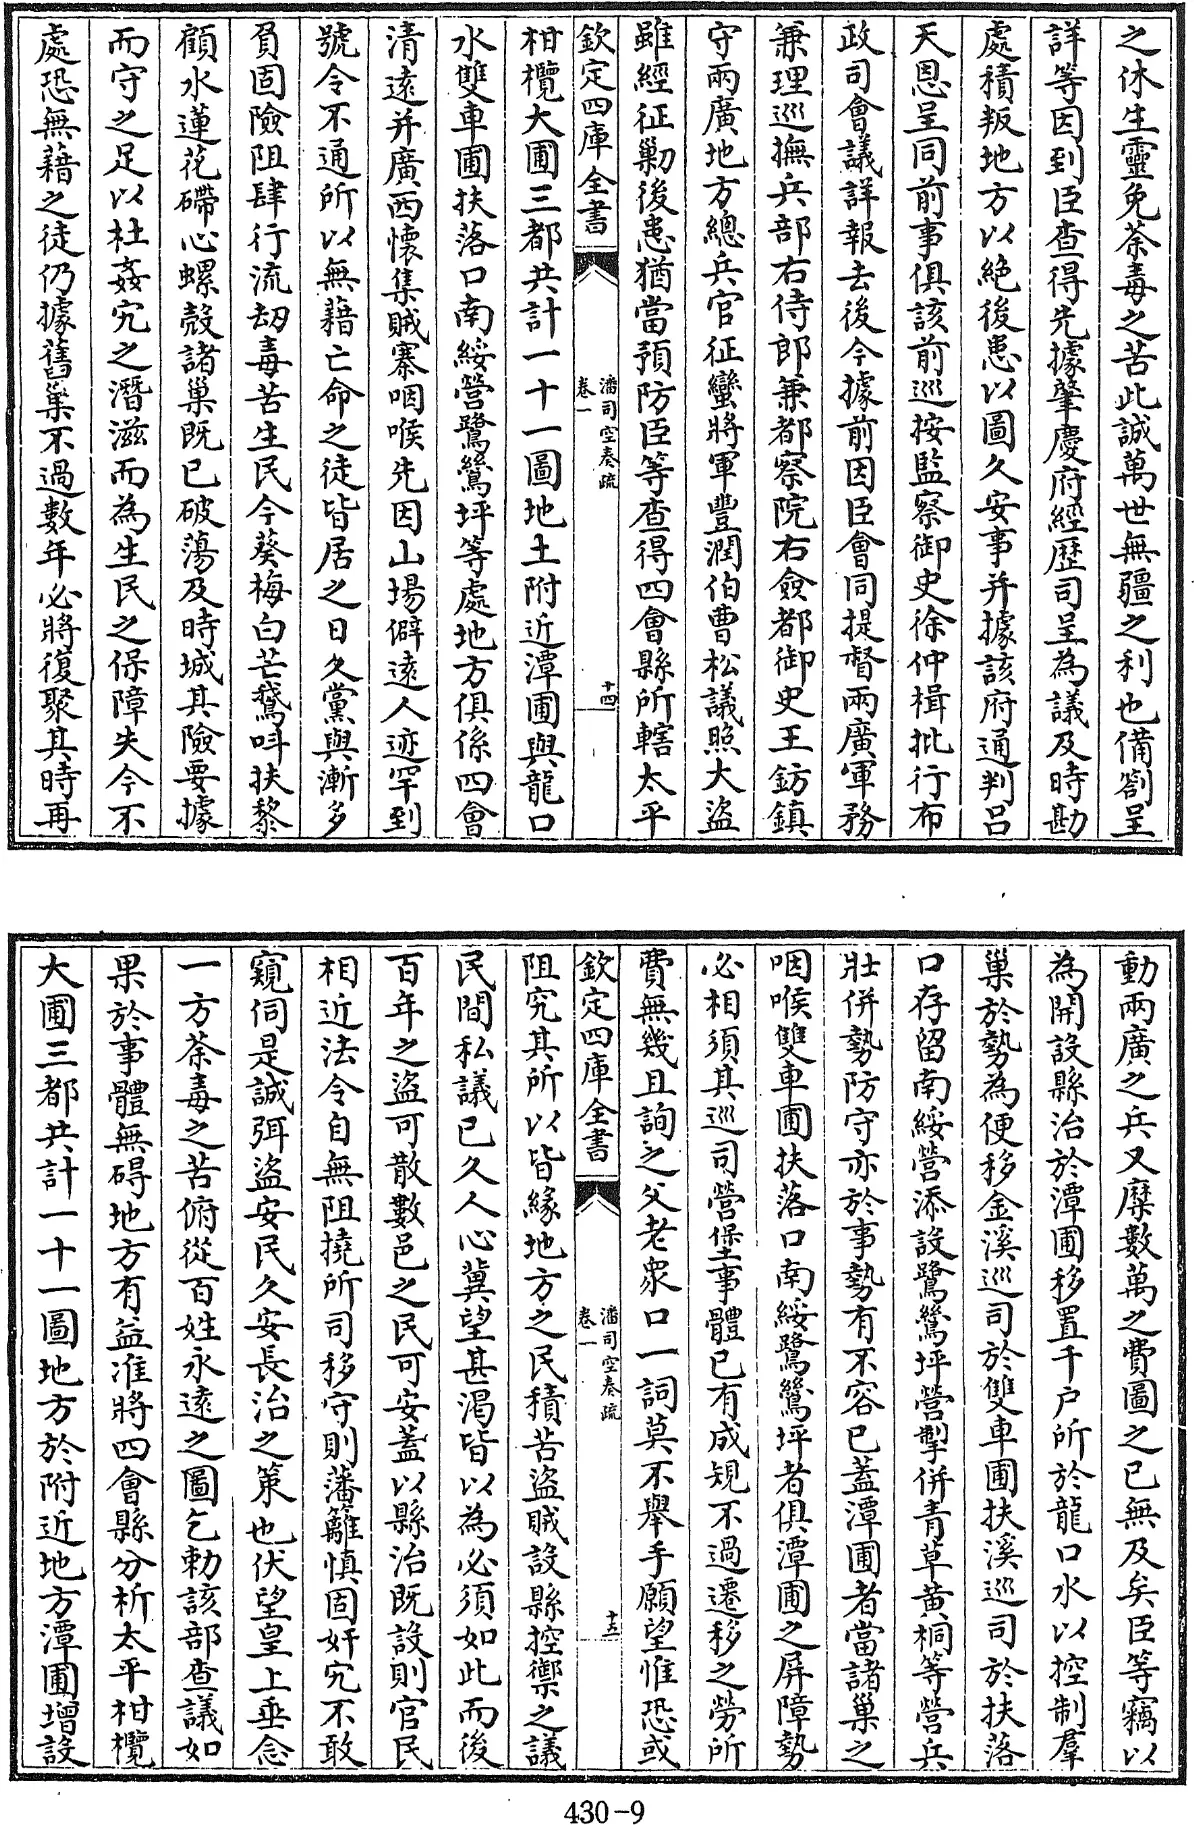 之休生靈免荼毒之苦此誠萬世無疆之利也備劄呈
詳等因到臣查得先據肇慶府經歷司呈為議及時勘
處積叛地方以絶後患以圖久安事并據該府通判呂
天恩呈同前事俱該前巡按監察御史徐仲楫批行布
政司會議詳報去後今據前因臣會同提督兩廣軍務
兼理巡撫兵部右侍郎兼都察院右僉都御史王鈁鎮
守兩廣地方總兵官征蠻將軍豐潤伯曹松議照大盜
雖經征勦後患猶當預防臣等查得四會縣所轄太平
欽定四庫全書
潘司空奏疏
卷一
十四
柑欖大圃三都共計一十一圖地土附近潭圃與龍口
水雙車圃扶落口南綏營鷺鷥坪等處地方俱係四會
清遠并廣西懷集賊寨咽喉先因山場僻遠人迹罕到
號令不通所以無藉亡命之徒皆居之日久黨與漸多
負固險阻肆行流刼毒苦生民今葵梅白芒鵞呌扶黎
顧水蓮花磗心螺殼諸巢既已破蕩及時城其險要據
而守之足以杜姦宄之潛滋而為生民之保障失今不
處恐無藉之徒仍據舊巢不過數年必將復聚其時再
動兩廣之兵又糜數萬之費圖之已無及矣臣等竊以
為開設縣治於潭圃移置千户所於龍口水以控制羣
巢於勢為便移金溪巡司於雙車圃扶溪巡司於扶落
口存留南綏營添設鷺鷥坪營掣併青草黄桐等營兵
壯併勢防守亦於事勢有不容已蓋潭圃者當諸巢之
咽喉雙車圃扶落口南綏鷺鷥坪者俱潭圃之屏障勢
必相須其巡司營堡事體已有成規不過遷移之勞所
費無幾且詢之父老衆口一詞莫不舉手願望惟恐或
欽定四庫全書
潘司空奏疏
卷一
十五
阻究其所以皆緣地方之民積苦盜賊設縣控禦之議
民間私議已久人心冀望甚渴皆以為必須如此而後
百年之盜可散數邑之民可安蓋以縣治既設則官民
相近法令自無阻撓所司移守則藩籬慎固奸宄不敢
窺伺是誠弭盜安民久安長治之策也伏望皇上垂念
一方荼毒之苦俯從百姓永遠之圖乞勅該部查議如
果於事體無碍地方有益准將四會縣分析太平柑欖
大圃三都共計一十一圖地方於附近地方潭圃增設
430-9